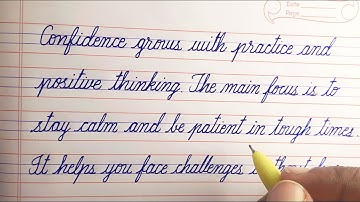 Date
Page
Confidence grows with practice and
positive thinking. The main focus is to
stay calm and be patient in tough times.
It helps you face challenges